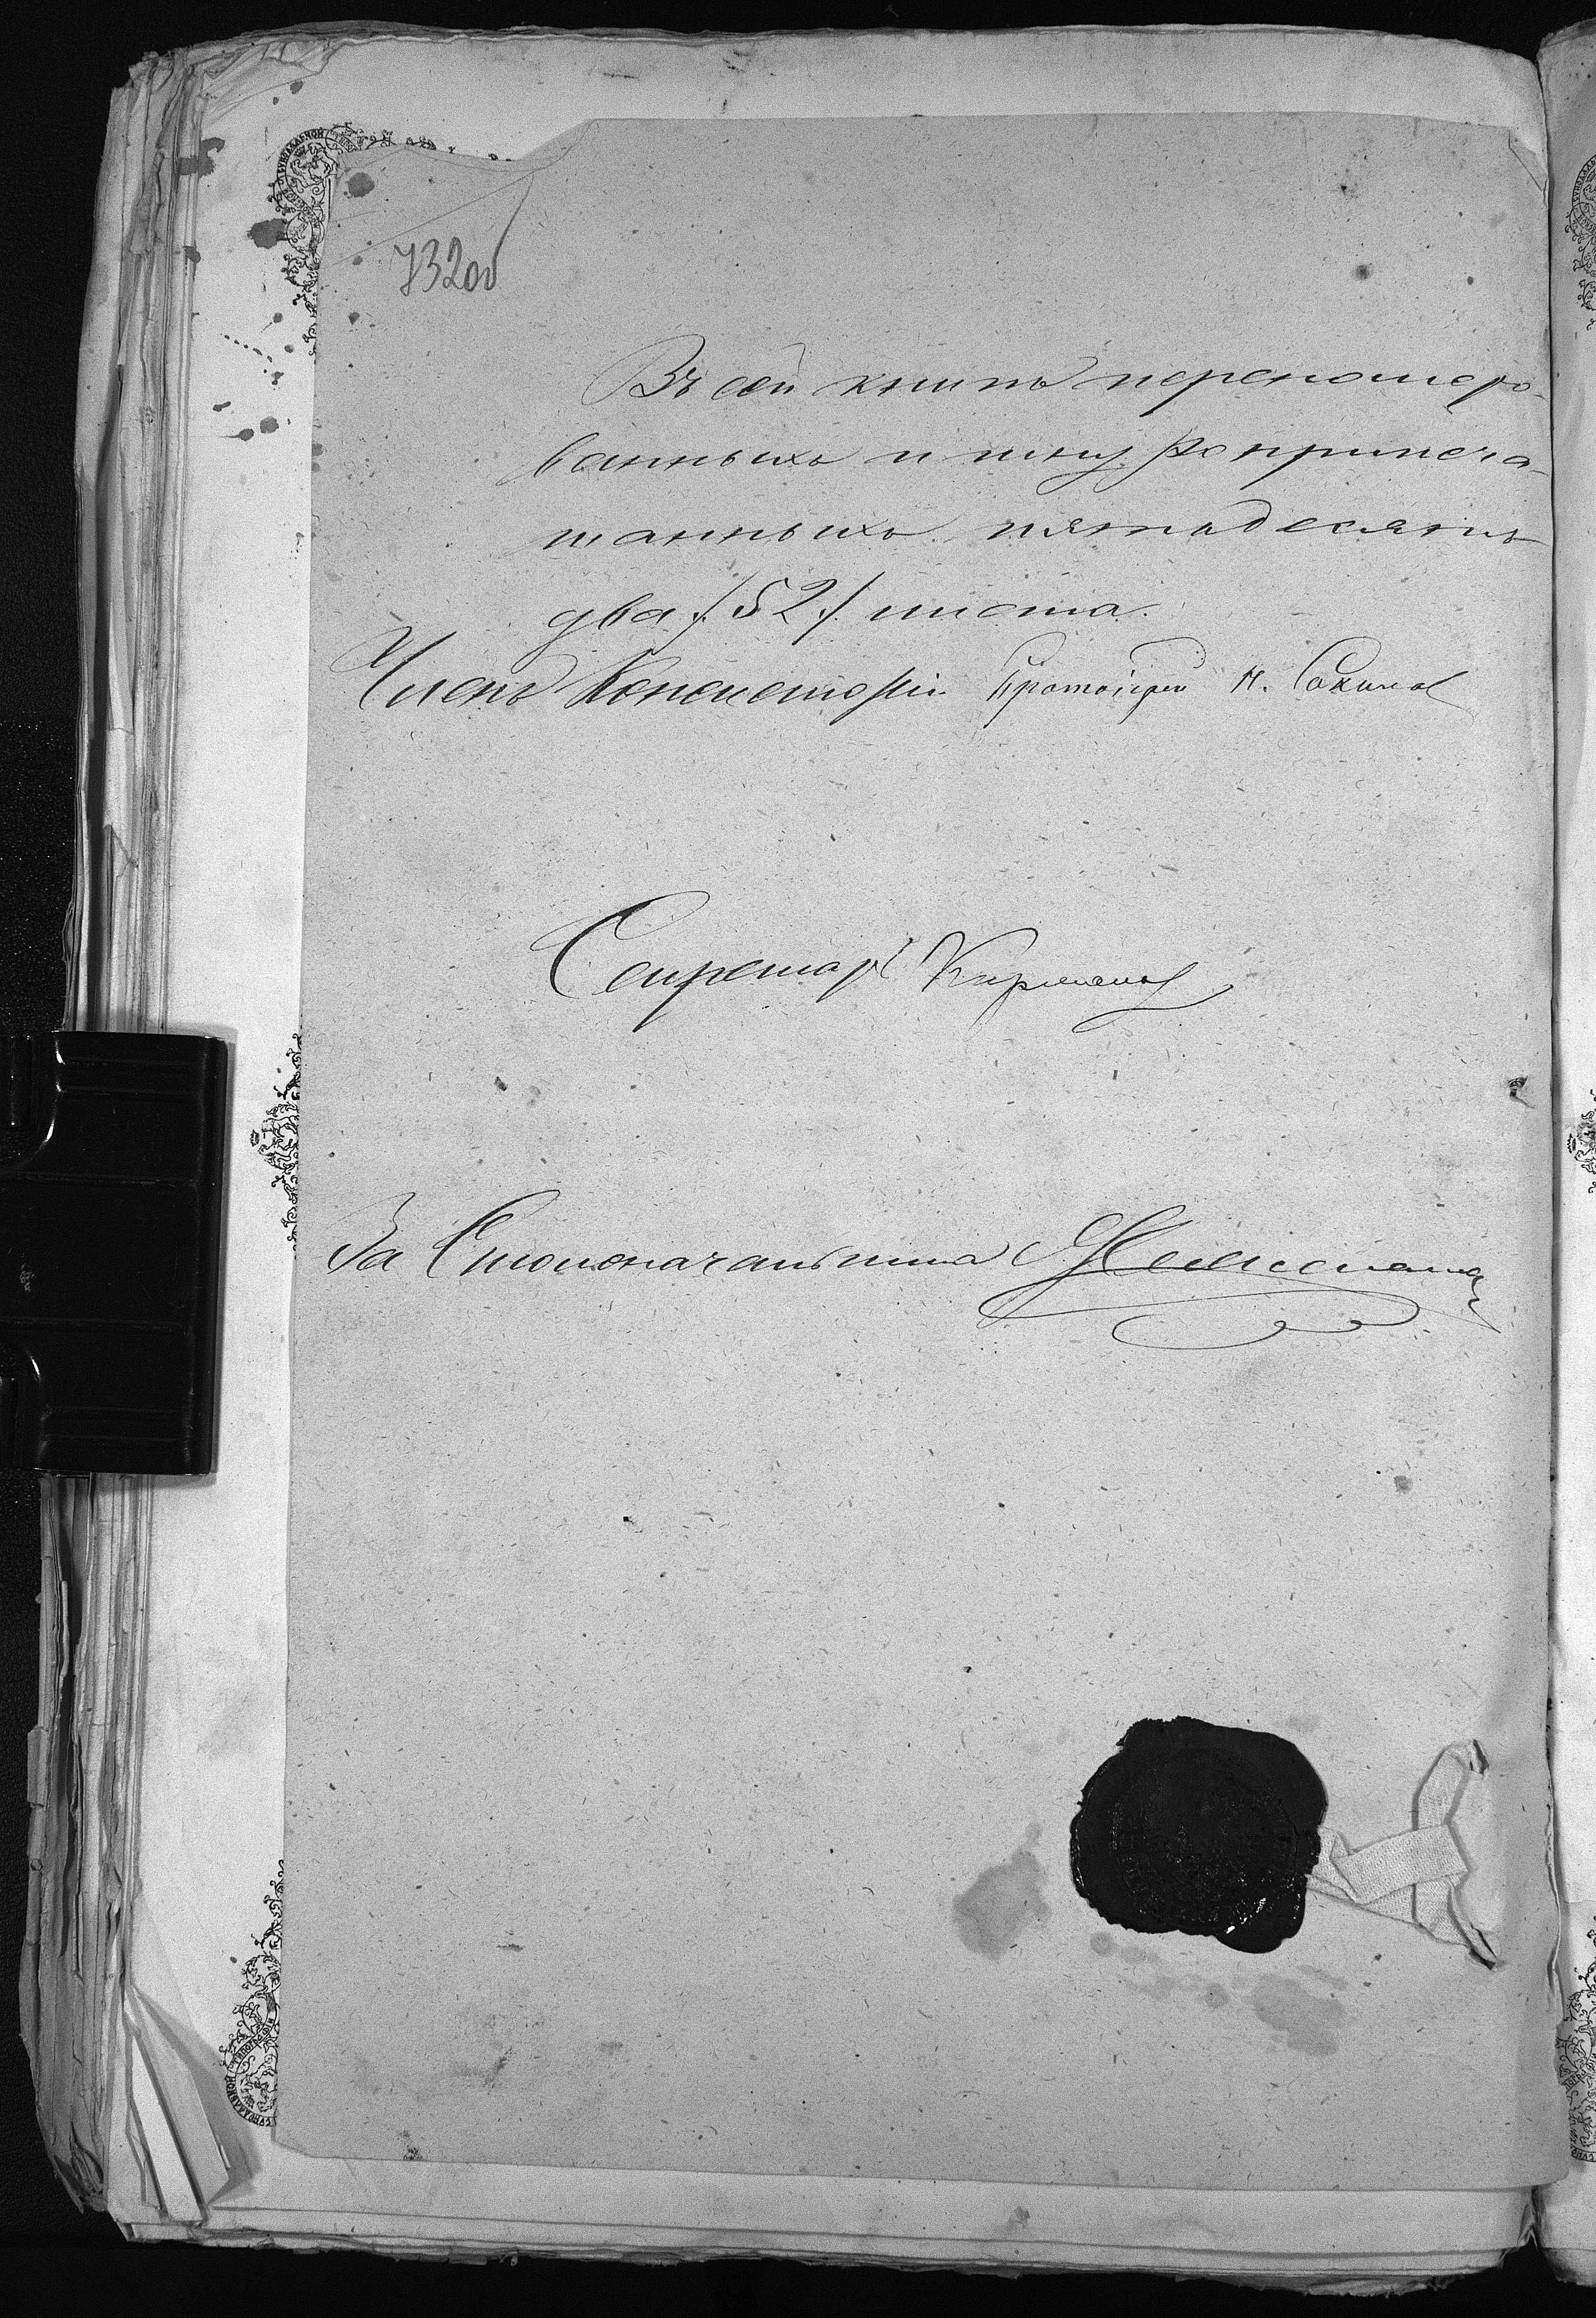 732об
Въ сей книгѣ переномеро-
ванныхъ и шнуроприпеча-
танныхъ пятьдесятъ
два /52/ листа.
Членъ Консисторіи Протоіерей Н.
Секретарь
За Столоначальника